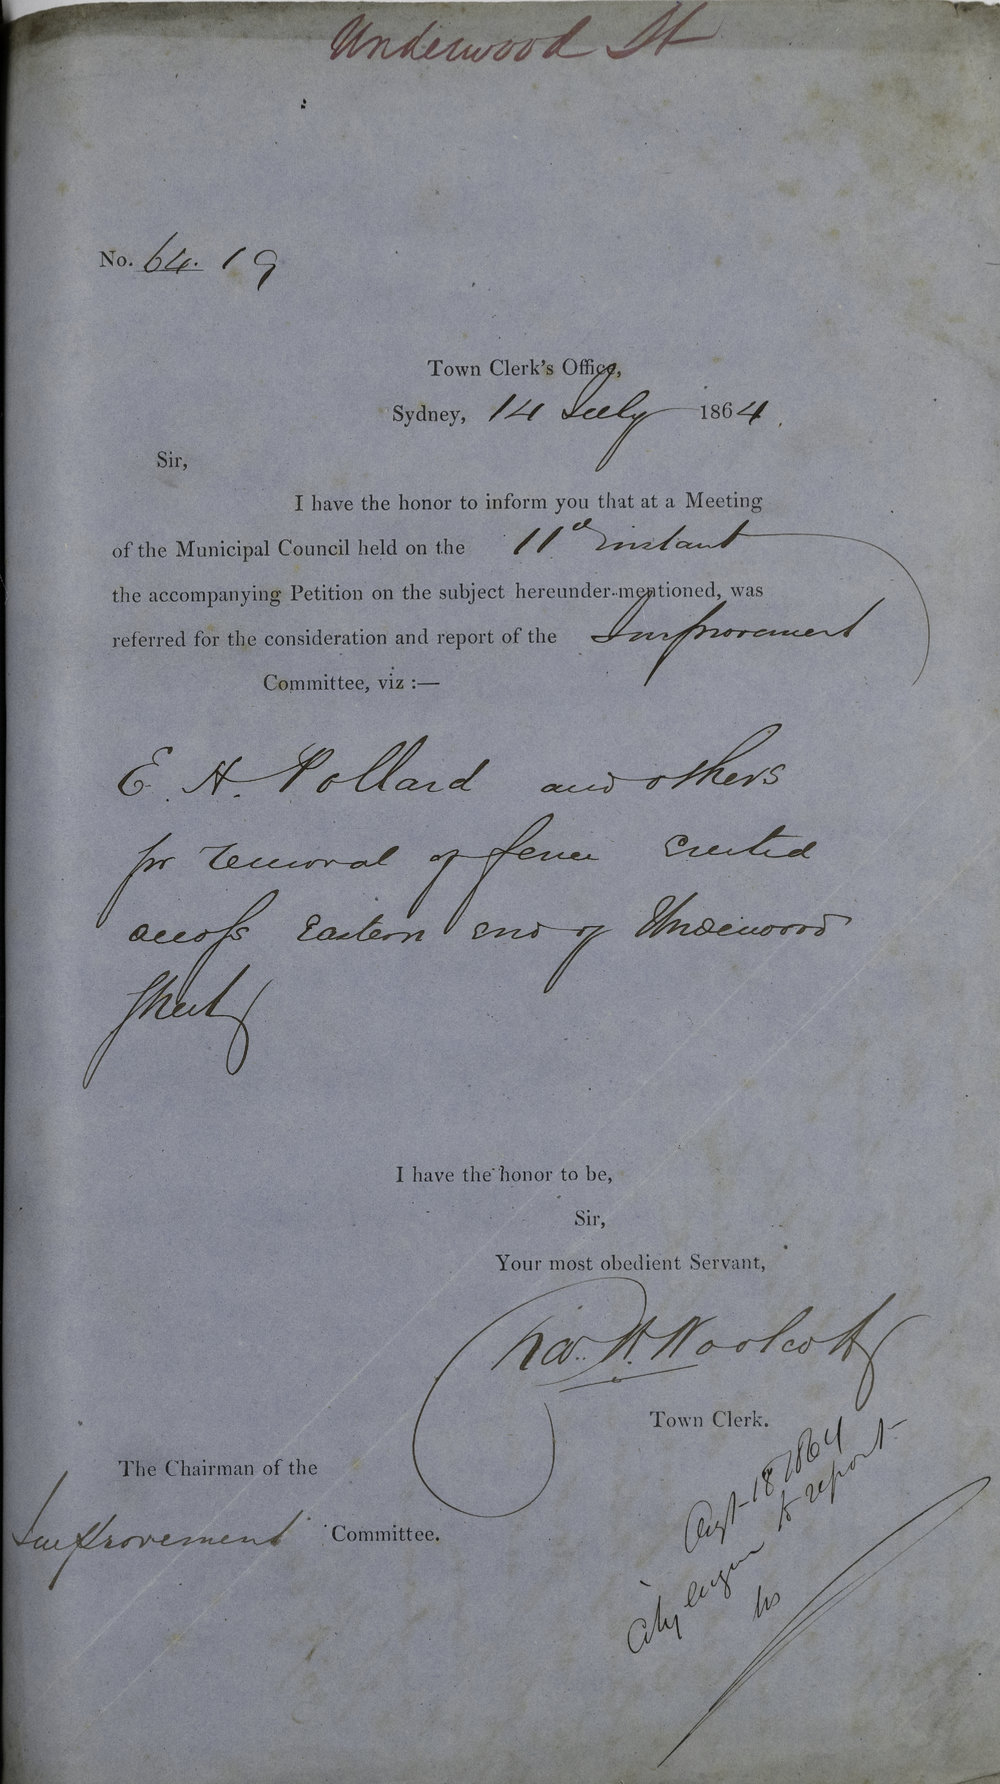 Underwood St
No. 64. 19
Town Clerk's Office,
Sydney, 14 July 1864.
Sir,
I have the honor to inform you that at a Meeting
of the Municipal Council held on the 11th instant
the accompanying Petition on the subject hereunder-mentioned, was
referred for the consideration and report of the Improvement
Committee, viz :—
E. H. Pollard and others
for removal of fence erected
across Eastern end of Underwood
Street
I have the honor to be,
Sir,
Your most obedient Servant,
Chas. H. Woolcott
Town Clerk.
The Chairman of the
Improvement Committee.
Augt 18 1864
City Engineer to report